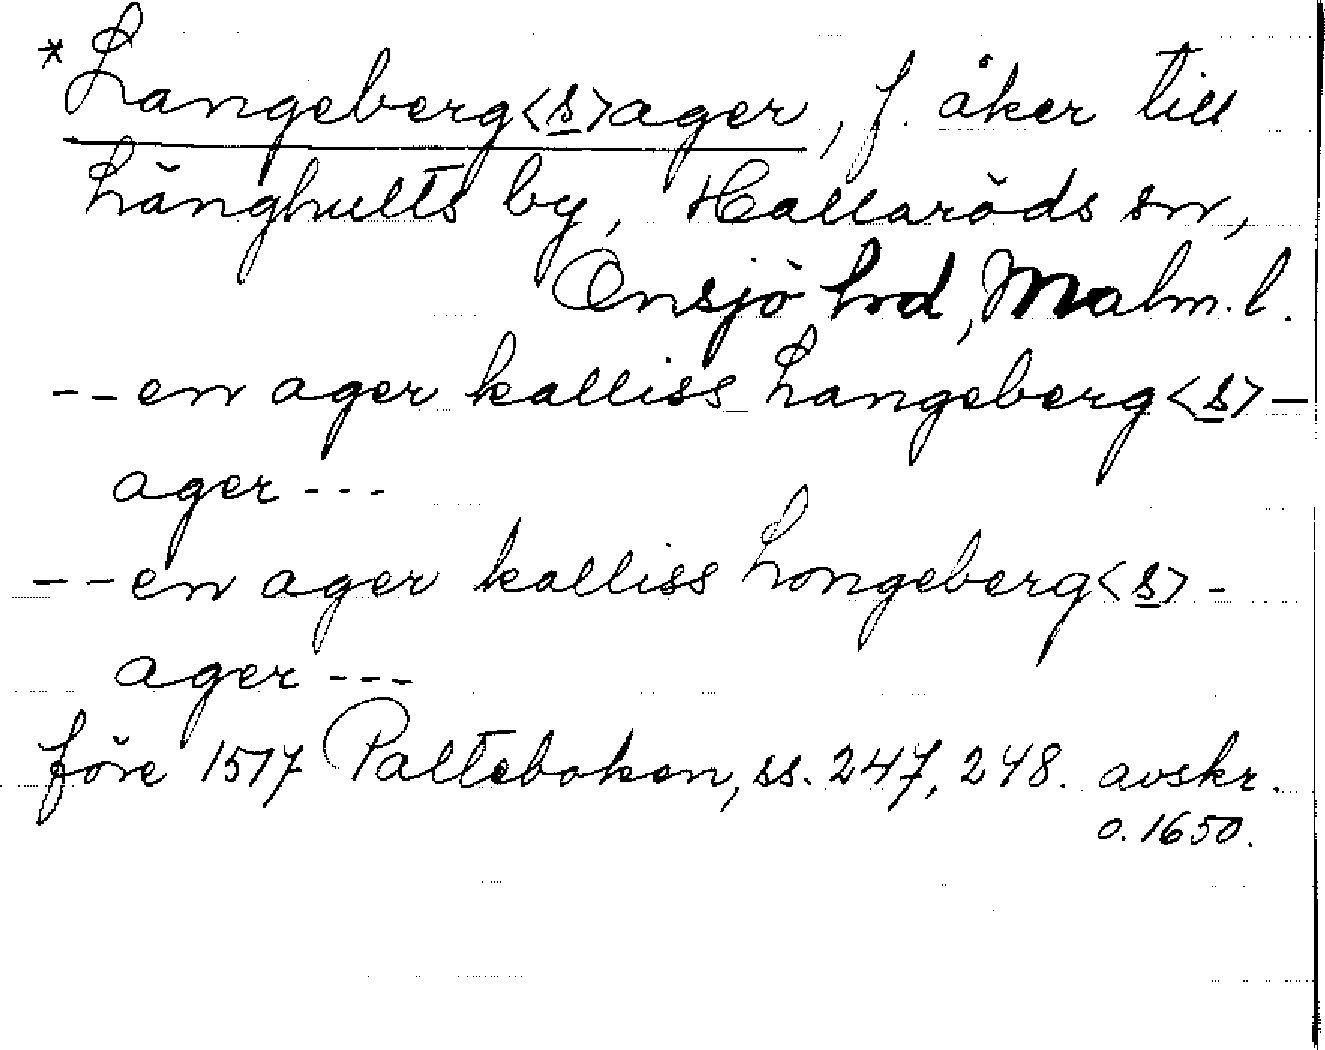 *Langeberg<s>ager, f. åker till
Långhults by, Hallaröds sn,
Onsjö hrd, Malm. l.
--en ager kalliss Langeberg<s>-
ager---
--en ager kalliss Longeberg<s>-
ager---
före 1517 Palteboken, ss. 247, 248. avskr.
o. 1650.